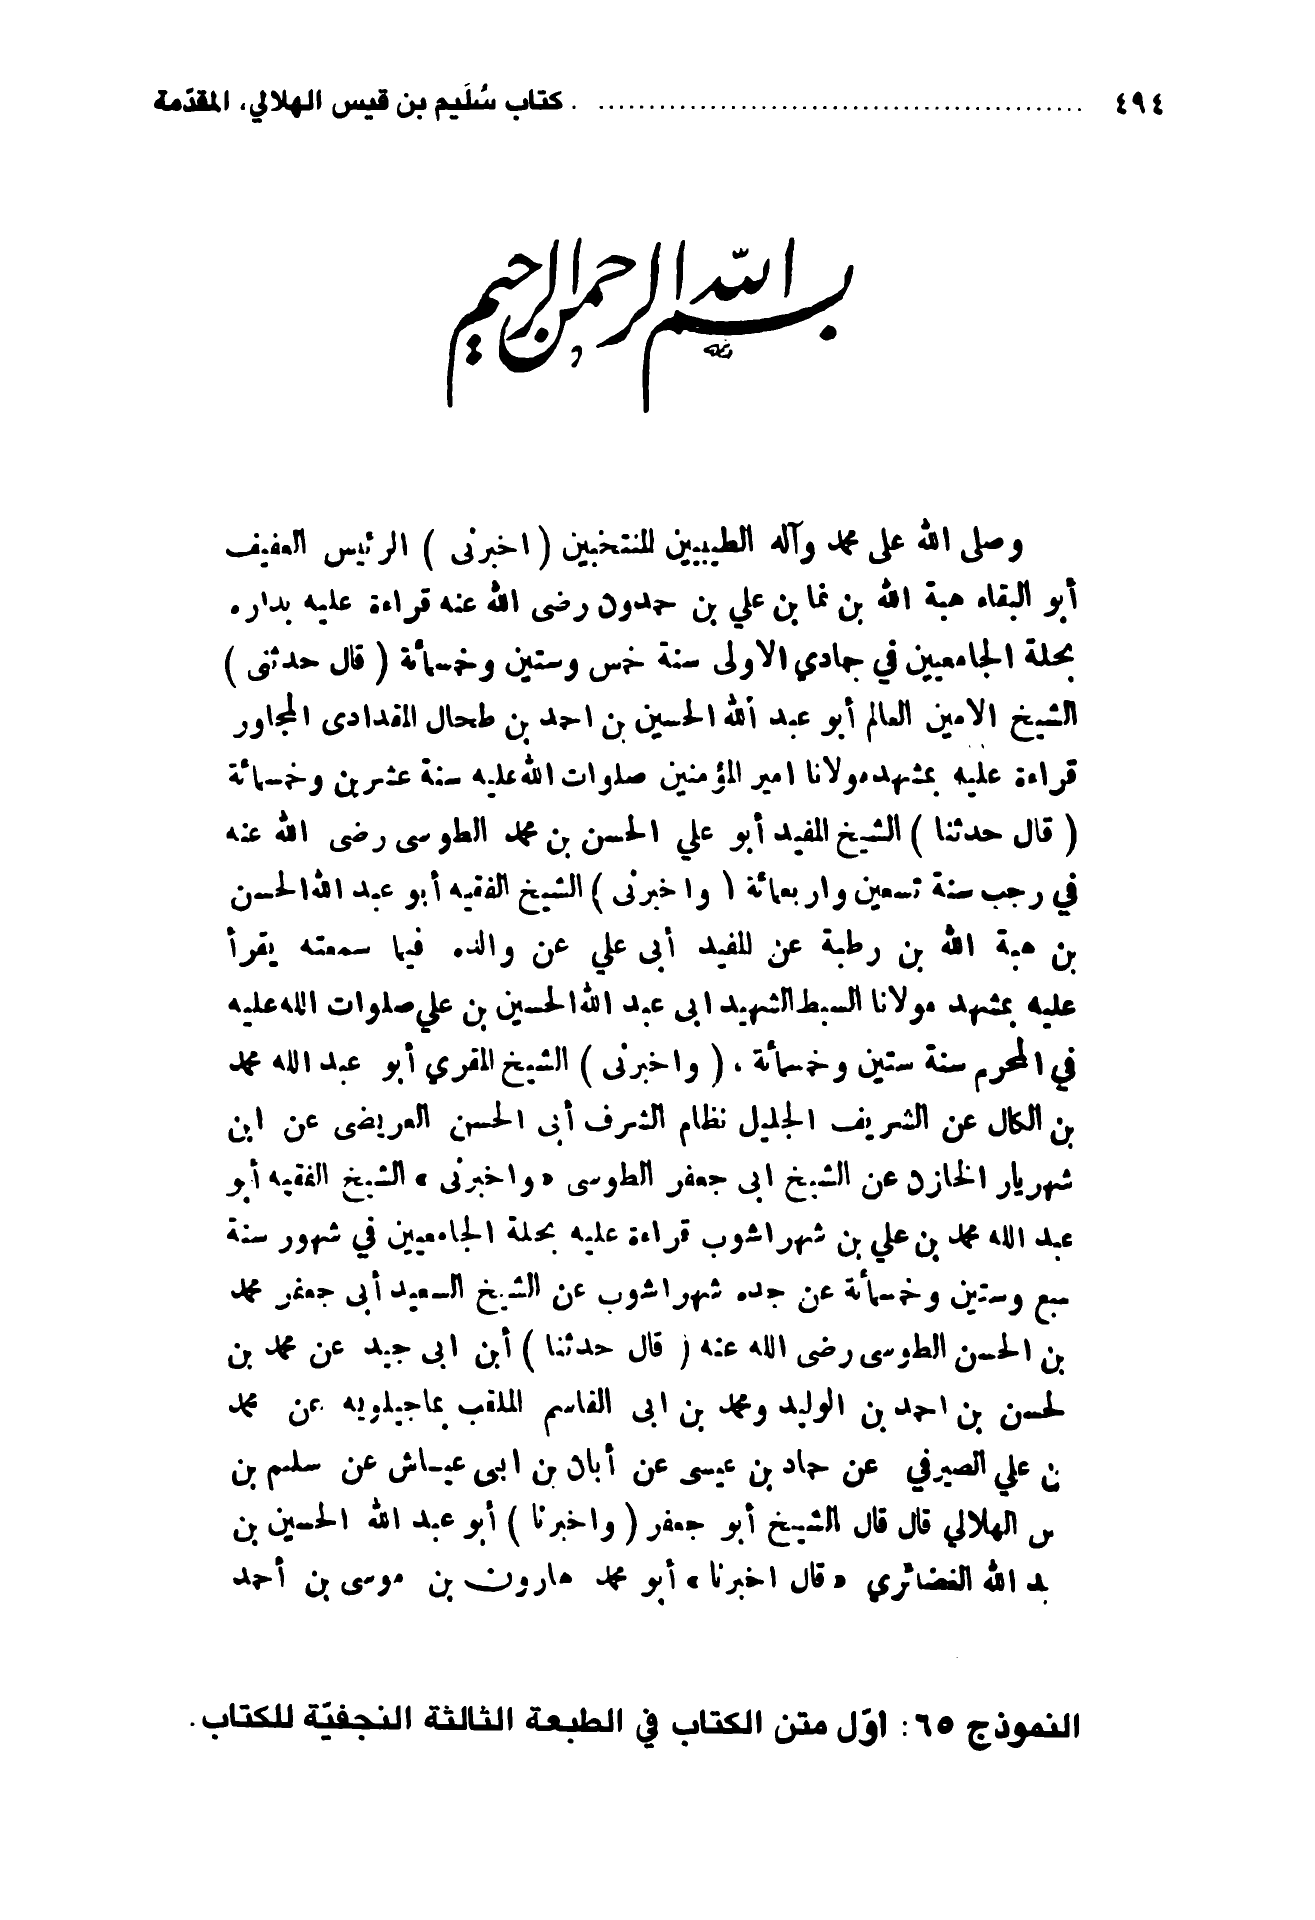 ٤٩٤ ........ كتاب سُلَيم بن قيس الهلالي، المقدّمة
بسم الله الرحمن الرحيم
وصلى الله على محمد وآله الطيبيين المنتخبين ( اخبرنى ) الرئيس العفيف
أبو البقاء هبة الله بن نما بن علي بن حمدون رضى الله عنه قراءة عليه بداره
بحلة الجامعيين في جمادي الاولى سنة خمس وستين وخمسمأئة ( قال حدثنى )
الشيخ الامين العالم أبو عبد ألله الحسين بن احمد بن طحال المقدادى المجاور
قراءة عليه بمشهد مولانا امير المؤمنين صلوات الله عليه سنة عشرين وخمسمائة
( قال حدثنا ) الشيخ المفيد أبو علي الحسن بن محمد الطوسى رضى الله عنه
في رجب سنة تسعين واربعمائة ( واخبرنى ) الشيخ الفقيه أبو عبد الله الحسن
بن هبة الله بن رطبة عن المفيد أبى علي عن والده فيما سمعته يقرأ
عليه بمشهد مولانا السبط الشهيد ابى عبد الله الحسين بن علي صلوات الله عليه
في المحرم سنة ستين وخمسمأئة ، ( واخبرنى ) الشيخ المقري أبو عبد الله محمد
بن الكال عن الشريف الجليل نظام الشرف أبى الحسن العريضى عن ابن
شهريار الخازن عن الشيخ ابى جعفر الطوسى « واخبرنى » الشيخ الفقيه أبو
عبد الله محمد بن علي بن شهراشوب قراءة عليه بحلة الجامعيين في شهور سنة
سبع وستين وخمسمأئة عن جده شهراشوب عن الشيخ السعيد أبى جعفر محمد
بن الحسن الطوسى رضى الله عنه ( قال حدثنا ) أبن ابى جيد عن محمد بن
لحسن بن احمد بن الوليد ومحمد بن ابى القاسم الملقب بماجيلويه عن محمد
ن علي الصيرفي عن حماد بن عيسى عن أبان بن ابى عياش عن سليم بن
س الهلالي قال قال الشيخ أبو جعفر ( واخبرنا ) أبو عبد الله الحسين بن
بد الله الغضائري « قال اخبرنا » أبو محمد هارون بن موسى بن أحمد
النموذج ٦٥: اوّل متن الكتاب في الطبعة الثالثة النجفيّة للكتاب.